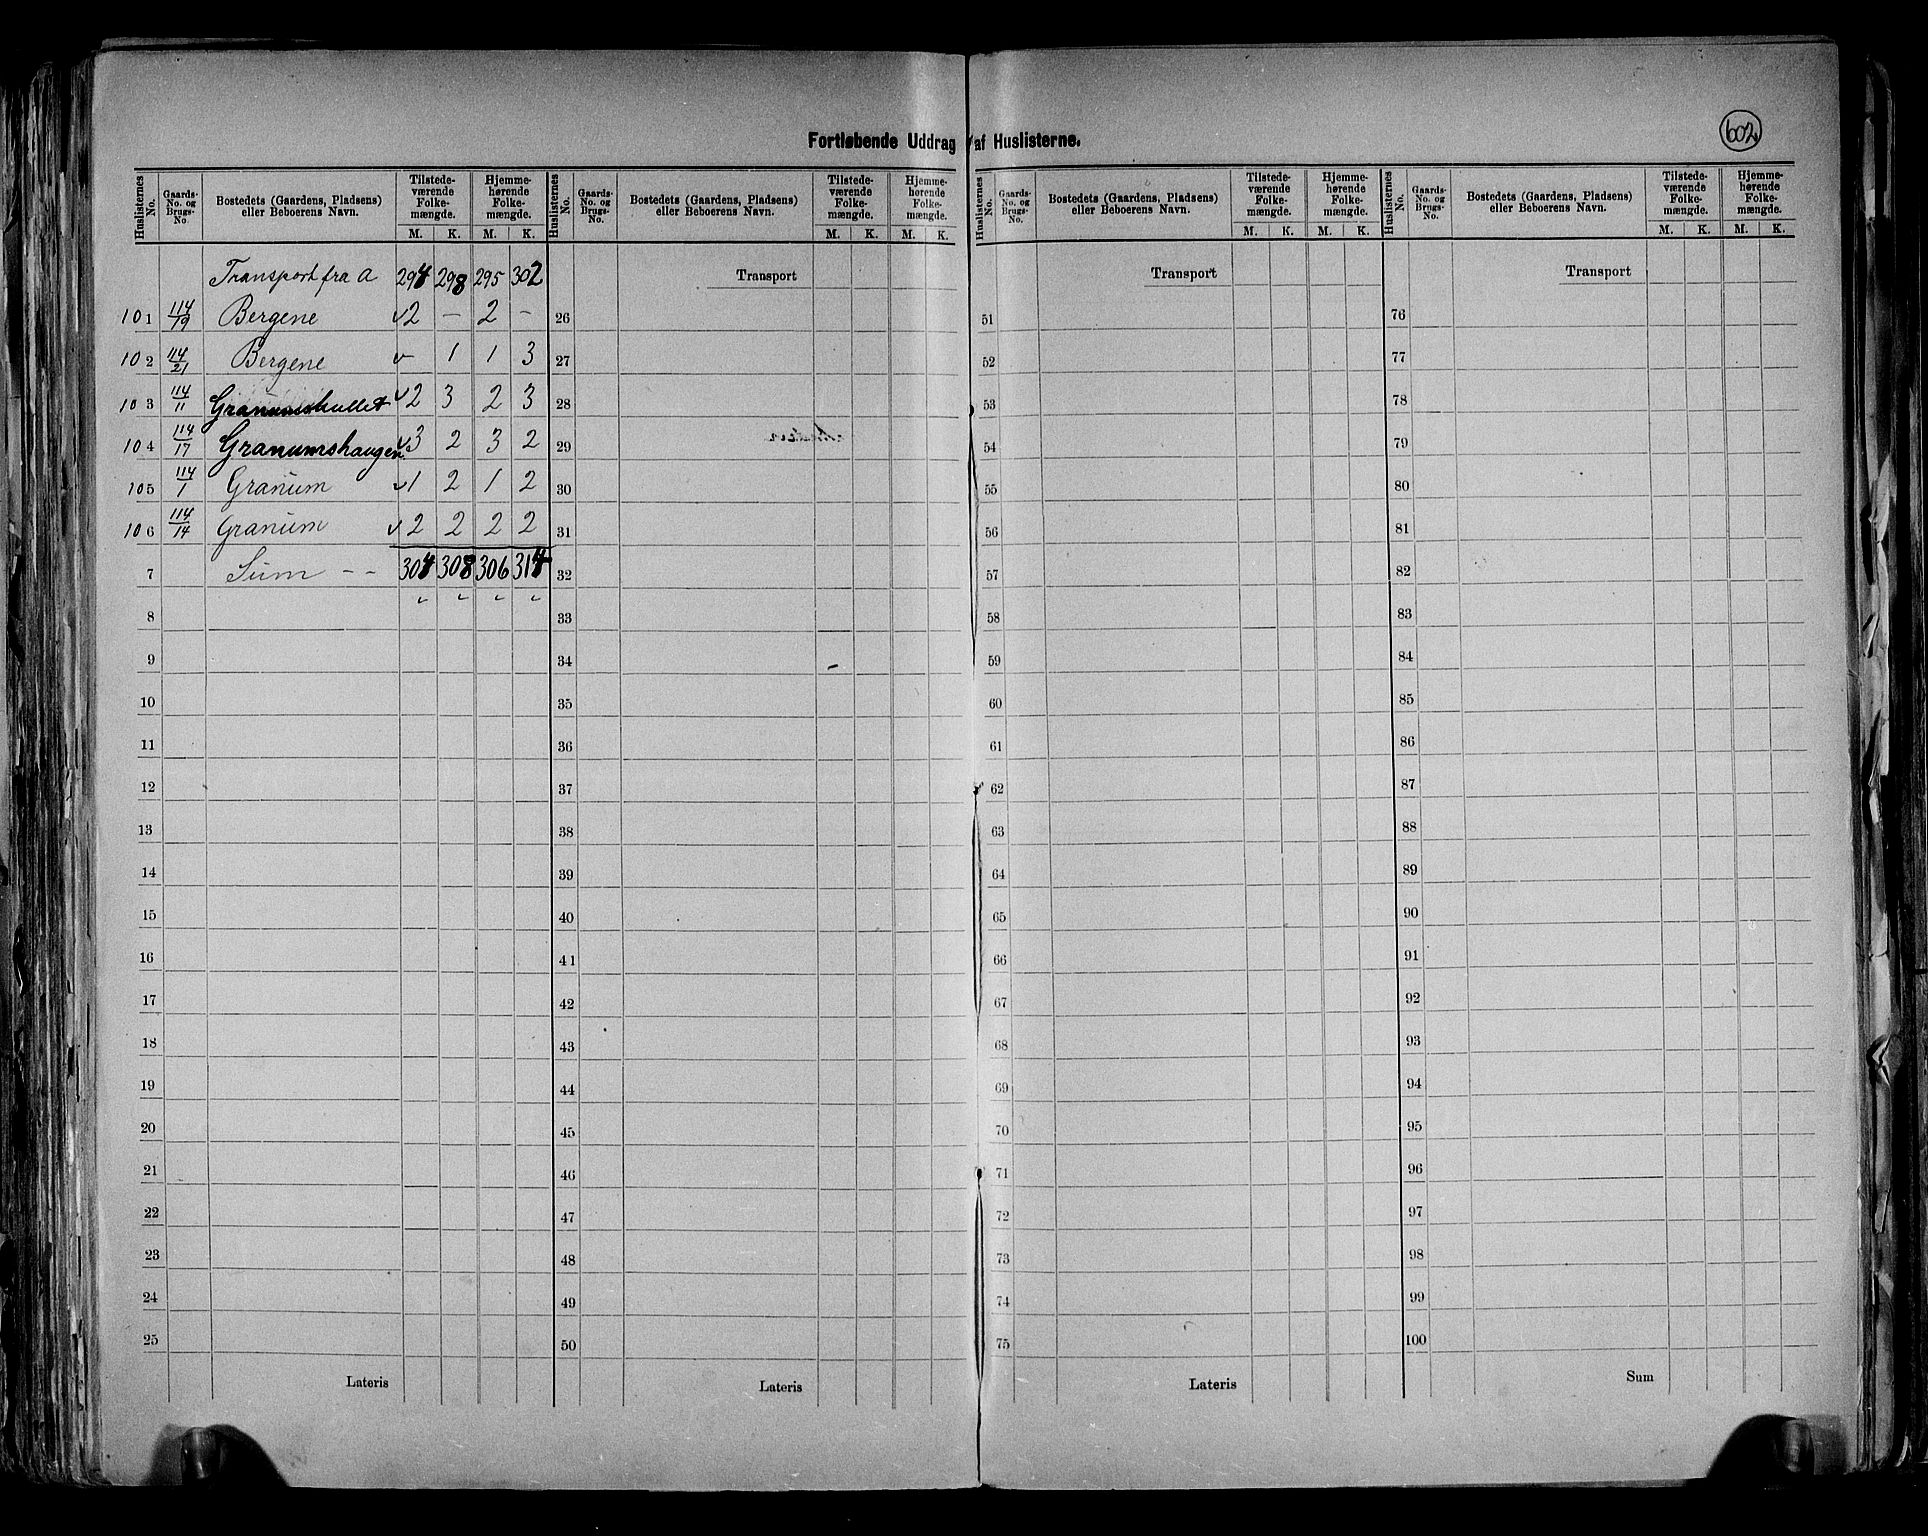 602
Fortløbende Uddrag af Huslisterne.
Huslisternes No. | Gaards-No. og Brugs-No. | Bostedets (Gaardens, Pladsens) eller Beboerens Navn. | Tilstedeværende Folkemængde. M. K. | Hjemmehørende Folkemængde. M. K.
Huslisternes No. | Gaards-No. og Brugs-No. | Bostedets (Gaardens, Pladsens) eller Beboerens Navn. | Tilstedeværende Folkemængde. M. K. | Hjemmehørende Folkemængde. M. K.
Huslisternes No. | Gaards-No. og Brugs-No. | Bostedets (Gaardens, Pladsens) eller Beboerens Navn. | Tilstedeværende Folkemængde. M. K. | Hjemmehørende Folkemængde. M. K.
Huslisternes No. | Gaards-No. og Brugs-No. | Bostedets (Gaardens, Pladsens) eller Beboerens Navn. | Tilstedeværende Folkemængde. M. K. | Hjemmehørende Folkemængde. M. K.
Transport fra a 294 298 295 302 | Transport | Transport | Transport
101 114/19 Bergene 2 – 2 – | 26 | 51 | 76
102 114/21 Bergene – 1 1 3 | 27 | 52 | 77
103 114/11 Granumshullet 2 3 2 3 | 28 | 53 | 78
104 114/17 Granumshaugen 3 2 3 2 | 29 | 54 | 79
105 114/1 Granum 1 2 1 2 | 30 | 55 | 80
106 114/14 Granum 2 2 2 2 | 31 | 56 | 81
7 Sum -- 304 308 306 314 | 32 | 57 | 82
8 | 33 | 58 | 83
9 | 34 | 59 | 84
10 | 35 | 60 | 85
11 | 36 | 61 | 86
12 | 37 | 62 | 87
13 | 38 | 63 | 88
14 | 39 | 64 | 89
15 | 40 | 65 | 90
16 | 41 | 66 | 91
17 | 42 | 67 | 92
18 | 43 | 68 | 93
19 | 44 | 69 | 94
20 | 45 | 70 | 95
21 | 46 | 71 | 96
22 | 47 | 72 | 97
23 | 48 | 73 | 98
24 | 49 | 74 | 99
25 | 50 | 75 | 100
Lateris | Lateris | Lateris | Sum